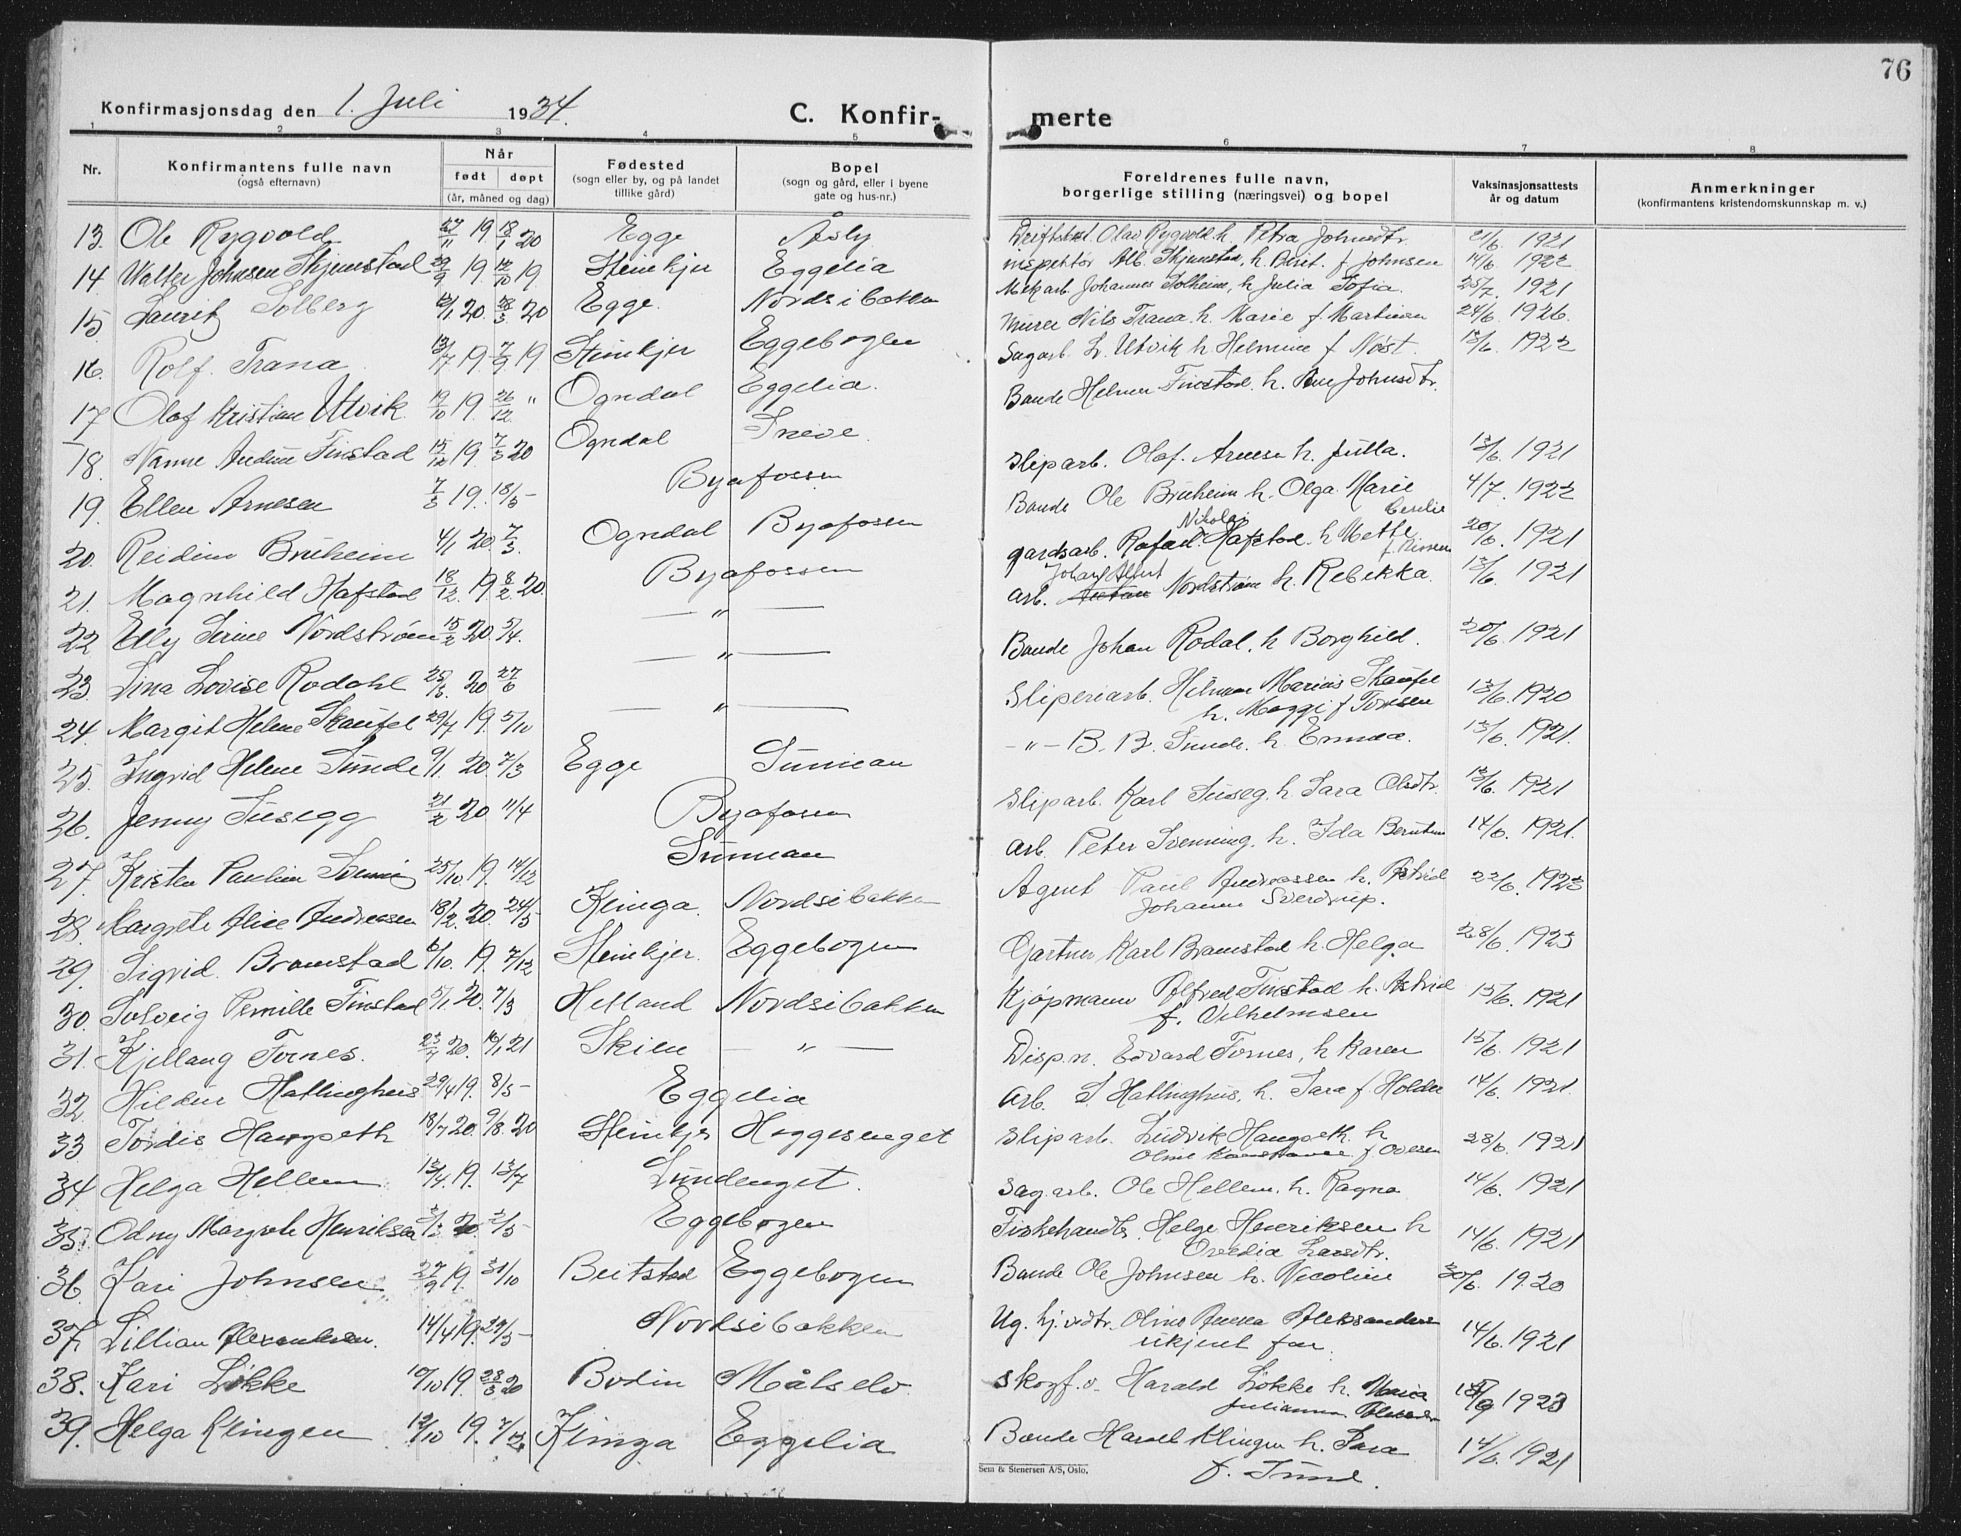 76
Konfirmasjonsdag den 1. Juli 1934.
C. Konfir-
merte
1 2 3 4 5 6 7 8
Nr.
Konfirmantens fulle navn
(også efternavn)
Når
født døpt
(år, måned og dag)
Fødested
(sogn eller by, og på landet
tillike gård)
Bopel
(sogn og gård, eller i byene
gate og hus-nr.)
Foreldrenes fulle navn,
borgerlige stilling (næringsvei) og bopel
Vaksinasjonsattests
år og datum
Anmerkninger
(konfirmantens kristendomskunnskap m. v.)
13. Ole Rygvold 27/11 19 18/1 20 Egge Åsly Olav Rygvold h. Petra Johnsdtr. 21/6 1921
14 Walter Johnsen Skjemstad 29/9 19. 12/10 19. Steinkjer Eggelia inspektør Alb. Skjemstad, h. f. Johnsen 14/6 1922
15 Laurits Solberg 20. 28/3 20 Egge. Nordsibakken Mek arb. Johannes Solheim, h. Julia Sofia. 25/7. 1921
16. Rolf Trana 13/7 19 7/9 19 Steinkjer Eggebogen Murer Nils Trana. h. Marie f. Martinsen 24/6. 1926.
17 Olaf Kristian Utvik 19/10 19. 26/12 " Ogndal Eggelia. Sagarb. L. Utvik h Helmine f Nøst. 13/6. 1922
18. Nanne Andrine Finstad 15/12 19 7/3 20 Ogndal Sneve. Bonde Helmer Finstad. h. Ane Johnsdtr.
19. Ellen Arnesen 7/3 19. 18/5 - Byafossen Sliparb. Olaf. Arnesen h. Jutta. 13/6. 1921
20. Reidun Bruheim 4/1 20. 7/3. Ogndal Byafossen Bonde Ole Bruheim h. Olga Marie Cecilie 4/7. 1922
21. Magnhild Hafstad 18/12. 19. 8/2. 20. Byafossen gardsarb. Nikolai Hafstad. h Mette f. Nissen 20/6. 1921
22 Elly Serine Nordstrøm 15/2 20. 5/4. — " — arb. Johan Nordstrøm h. Rebekka. 13/6. 1921
23. Lina Lovise Rodahl 25/3. 20 27/6 — " — Bonde Johan Rodal. h Borghild. 20/6. 1921
24. Margit Helene Skaufel 29/7 19. 5/10 — " — Sliperiarb. Hilmar Marius Skaufel h. Maggi f Tonsen 13/6. 1920
25. Ingrid Helene Sunde 9/1 20. 7/3 Egge Sunnan - " - B. B. Sunde. h. Emma. 13/6. 1921.
26. Jenny Susegg 21/2 20 11/4 Byafossen Sliparb. Karl Suseg. h Sara Olsdtr. 13/6. 1921
27. Kristen Paulin 25/10. 19. 14/12 Sunnan arb. Peter Svenning. h. Ida Berntsen 14/6. 1921.
28. Margrete Alice Andreassen 18/2. 20. 24/5 Kvinga. Nordsibakken Agent Paul Andreassen h. Astrid Johanne Sverdrup. 22/6. 1923
29. Sigrid Bramstad 6/10. 19. 7/12 Steinkjer. Eggebogen Gartner Karl Bramstad h. Helga 28/6. 1923
30. Solveig Pernille Finstad 5/1 20. 7/3 Helland Nordsibakken Kjøpmann Alfred Finstad h. Astrid f. Vilhelmsen 13/6. 1921
31. Kjellaug Fornes. 23/7 20. 16/1 21 Skien — " — Disp.n. Edvard Fornes, h Karen 15/6. 1921
32. Hildur Hatlinghus 29/4 19. 8/5 - Eggelia arb. S. Hatlinghus. h. Sara f. Holder 14/6. 1921.
33 Tordis Haugseth 18/7 20. 9/8. 20 Steinkjer Hoggesenget Sliparb. Ludvik Haugseth. h Oline f Ovesen 28/6. 1921
34. Helga Hellem 13/4. 19. 13/7 Lundenget. Sag. arb. Ole Hellem. h. Ragna 14/6. 1921
35. Odny Margrete Henriksen 20. Eggebogen Fiskehandler. Helge Henriksen h Ovedia Larsdtr. 14/6. 1921
36. Kari Johnsen 27/9 19. 31/10 Beitstad Eggebogen Bonde Ole Johnsen h. Nicoline 30/6. 1920
37. Lillian Alexandersen. 14/4 19. 29/5 - Nordsibakken Ug. hj.vedtr. Oline Aleksandersen ukjent far. 14/6. 1921
38. Kari Løkke 10/10 19. 28/3 20 Bodin Målselv. Skogf.v. Harald Løkke h. Maria Julianna 1923
39. Helga Klingen 12/10 19. 7/12 Kvinga Eggelia Bonde Harald Klingen h. Sara f. Tund. 14/6. 1921
Sem & Stenersen A/S, Oslo.